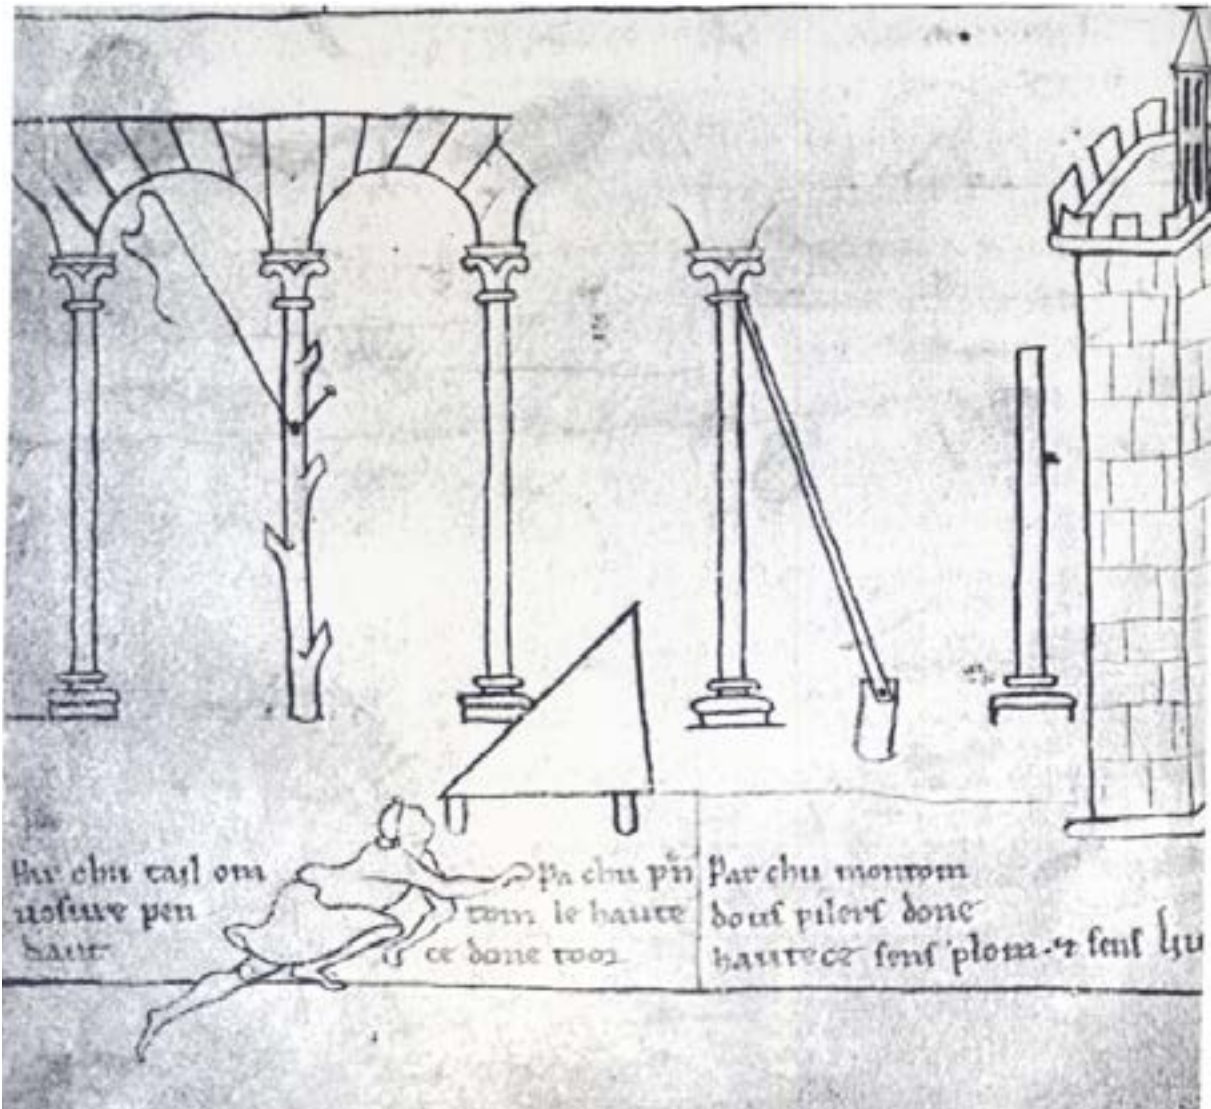 Par chu tail om
vosure pen
dant
Pa chu prē
tom le haute
ce done toor
Par chu montom
dous pilers done
hautece sens plom ⁊ sens